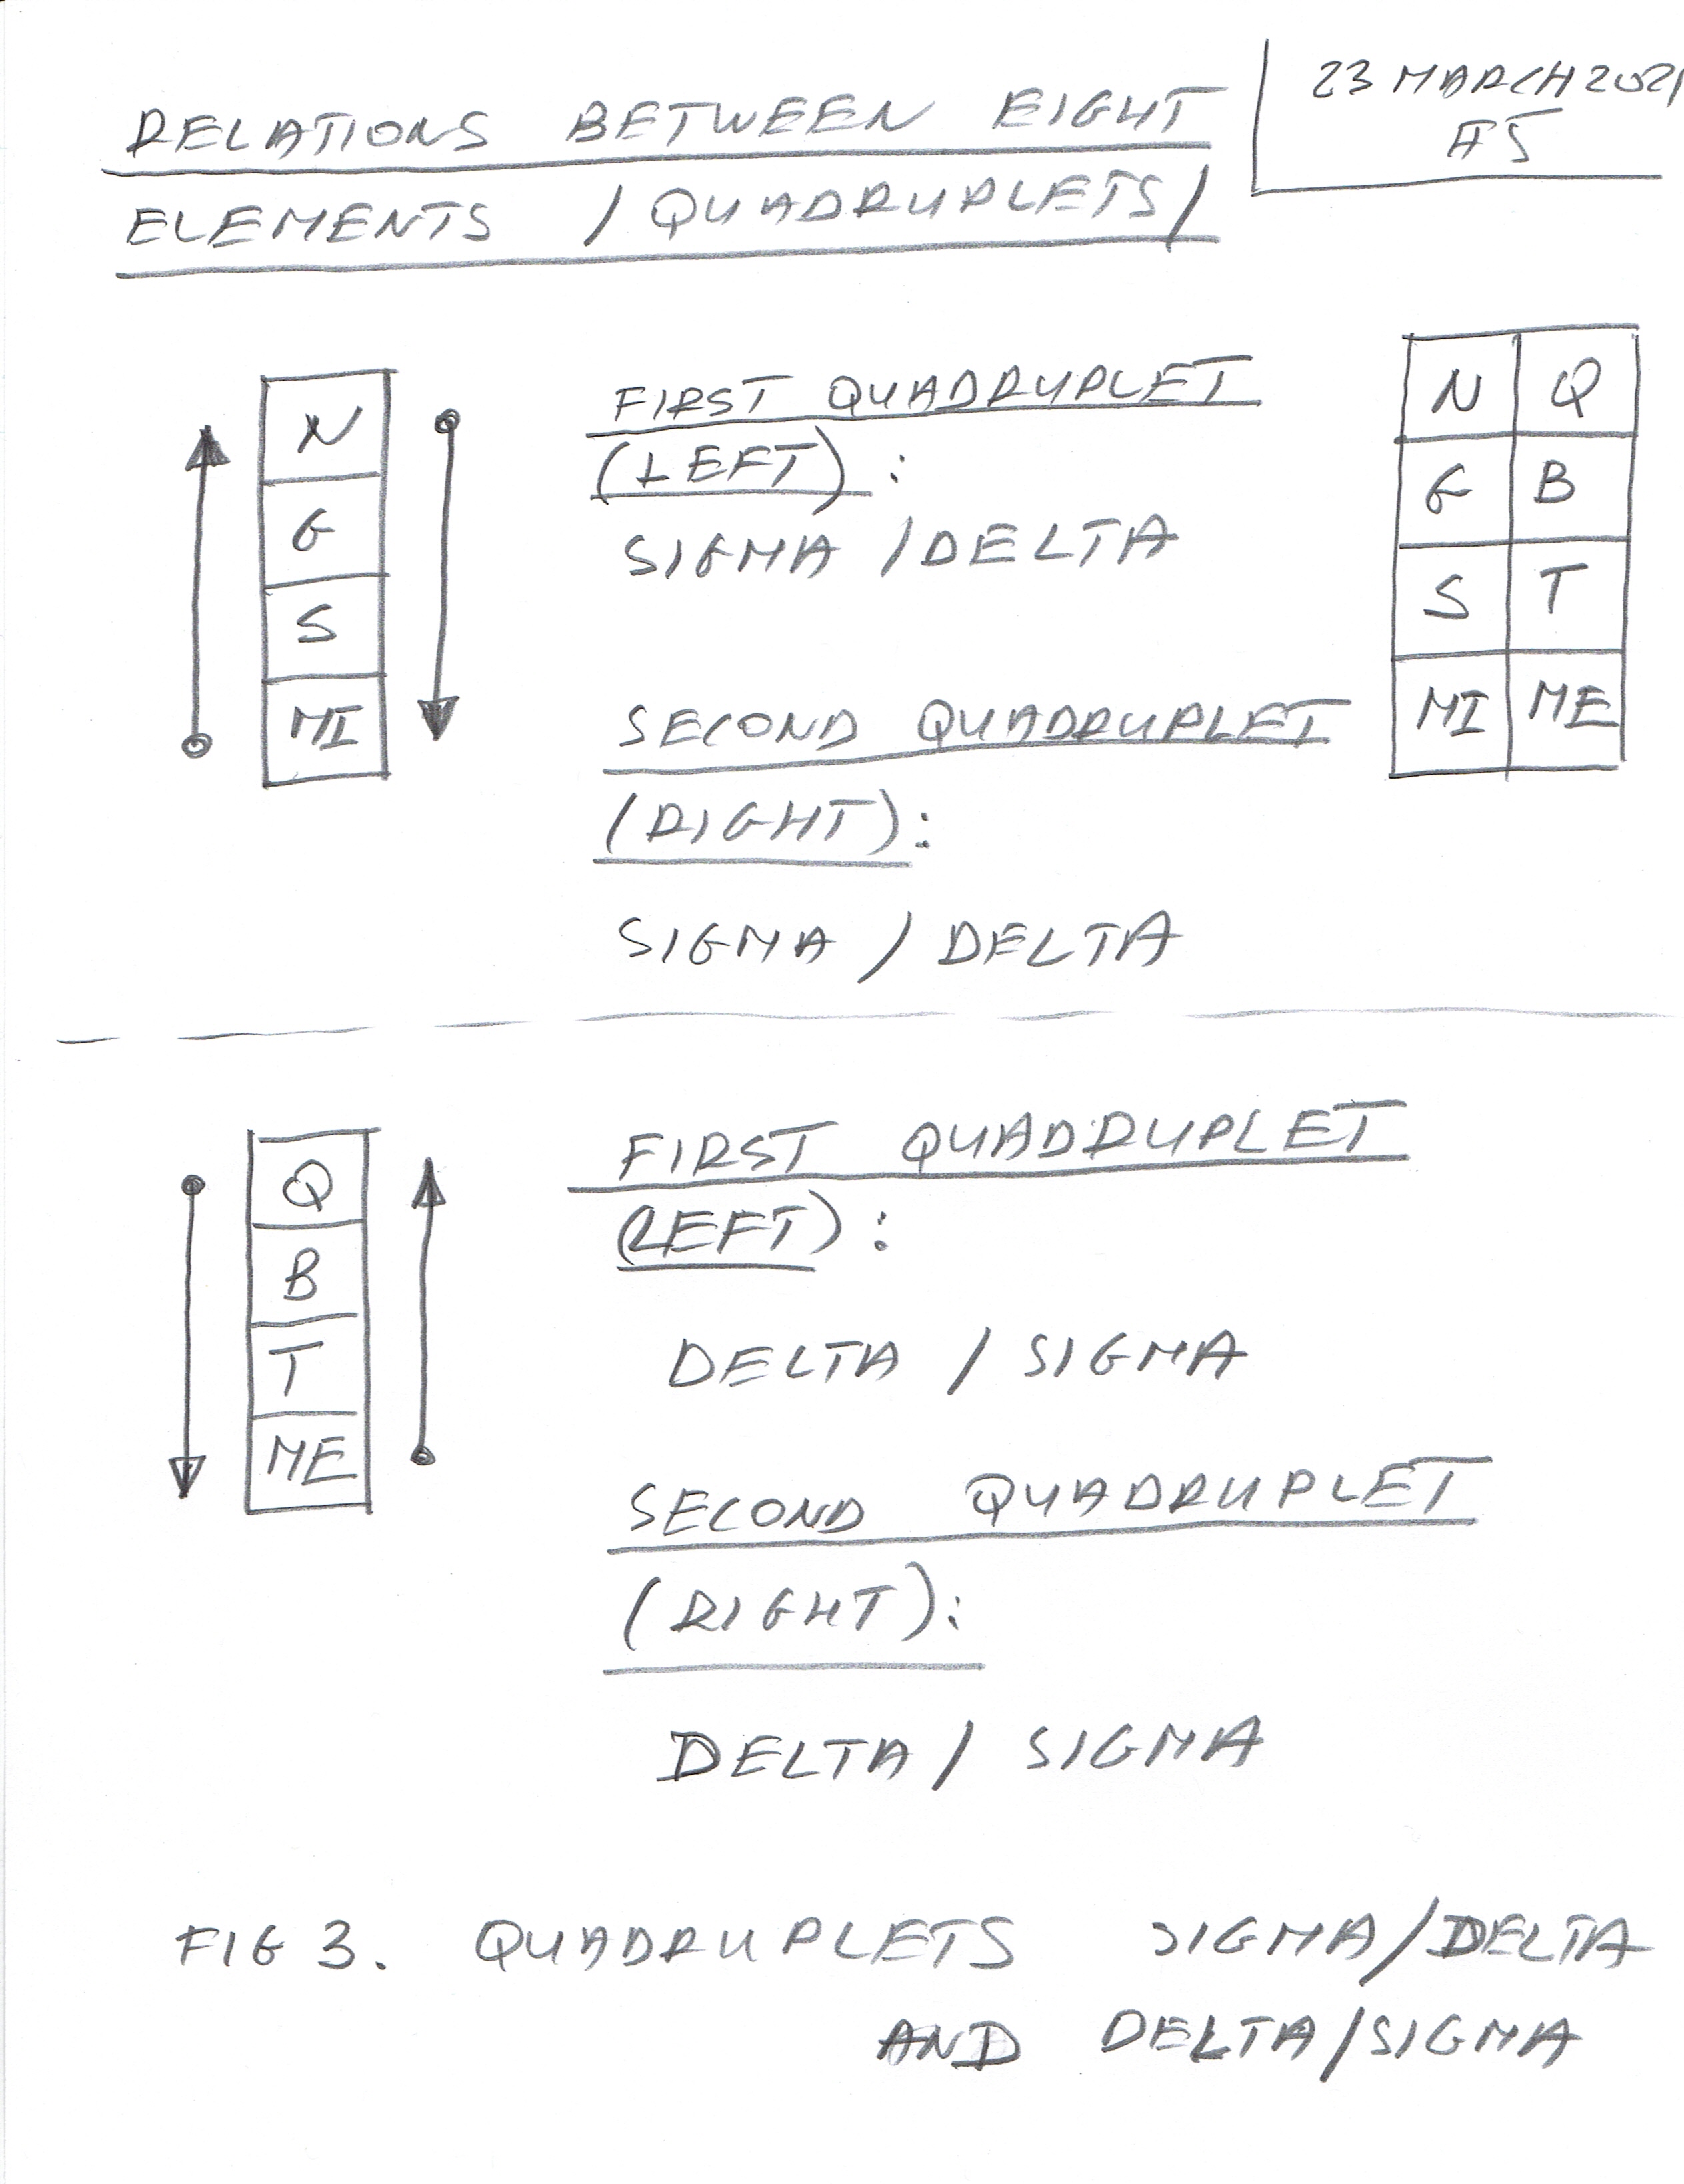 RELATIONS BETWEEN EIGHT
ELEMENTS / QUADRUPLETS /
23 MARCH 2021
AJ
N
G
S
MI
FIRST QUADRUPLET
(LEFT) :
SIGMA / DELTA
SECOND QUADRUPLET
(RIGHT) :
SIGMA / DELTA
N Q
G B
S T
MI ME
Q
B
T
ME
FIRST QUADRUPLET
(LEFT) :
DELTA / SIGMA
SECOND QUADRUPLET
(RIGHT) :
DELTA / SIGMA
FIG 3. QUADRUPLETS SIGMA/DELTA
AND DELTA/SIGMA